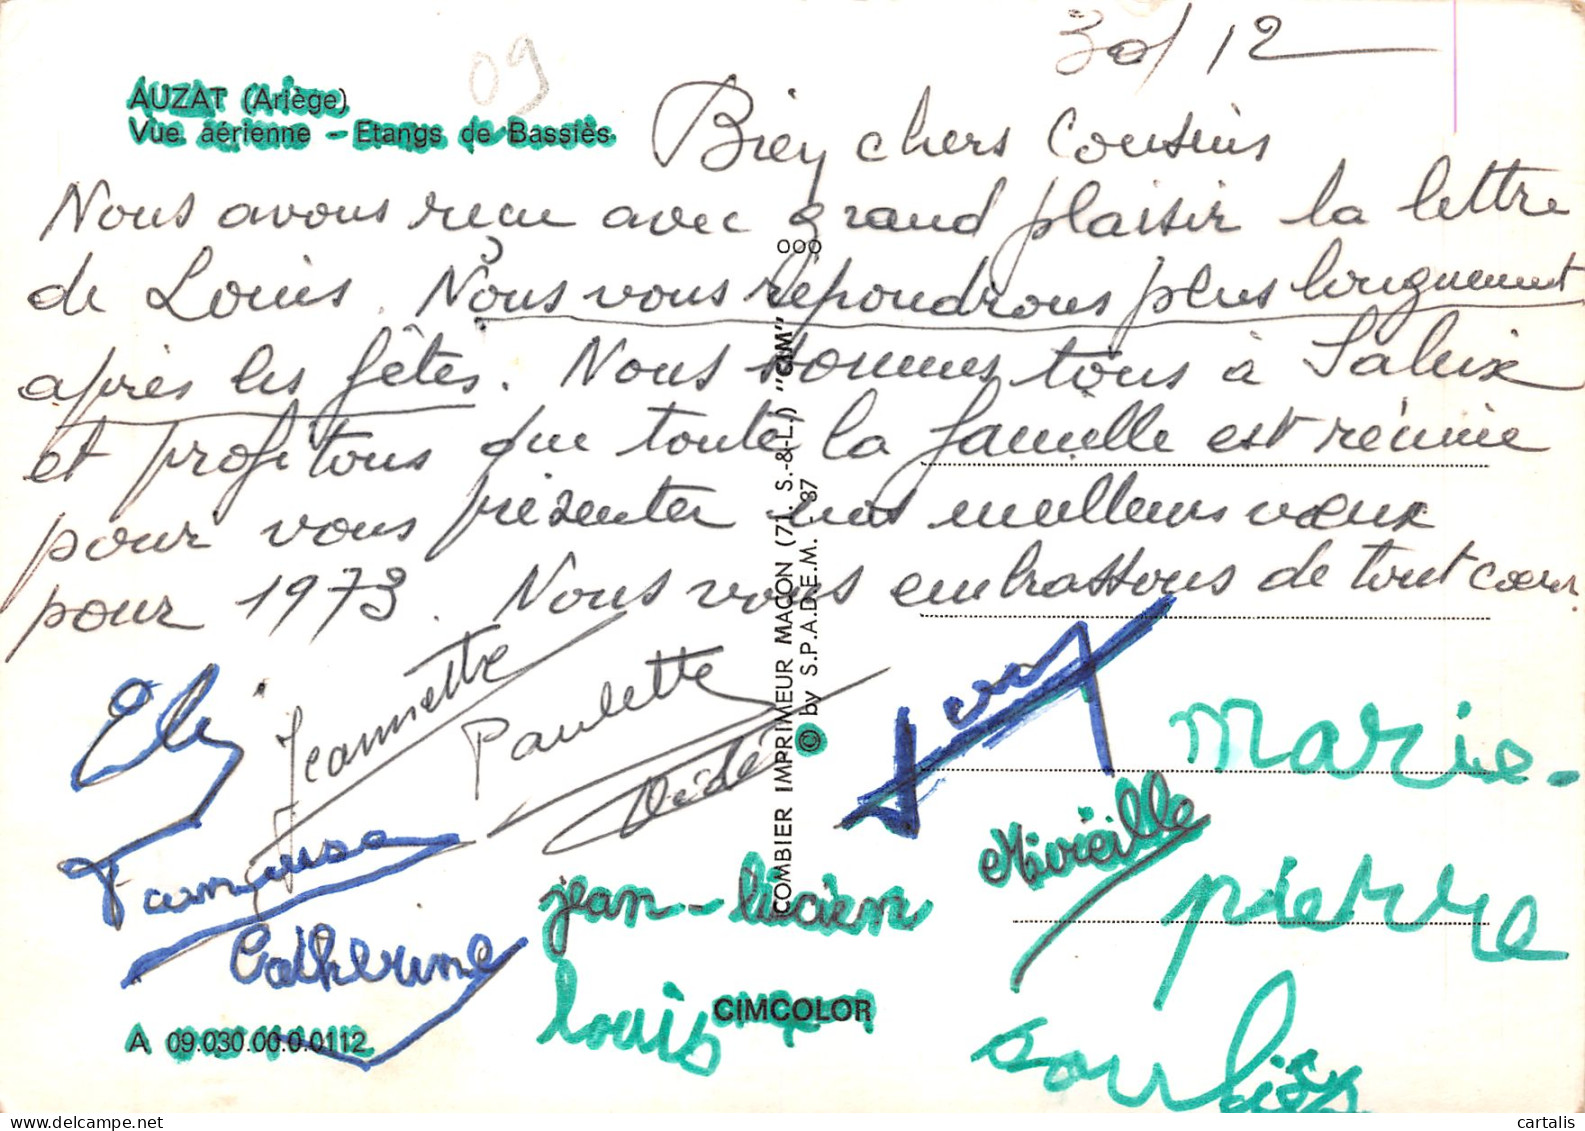 30/12
09
AUZAT (Ariège)
Vue aérienne - Etangs de Bassiès
Bien chers Cousins
Nous avons reçu avec grand plaisir la lettre
de Louis. Nous vous répondrons plus longuement
après les fêtes. Nous sommes tous à Saleix
et profitons que toute la famille est réunie
pour vous présenter nos meilleurs voeux
pour 1973. Nous vous embrassons de tout coeur.
Eli
Jeannette
Paulette
Dédé
Marie-
pierre
Mireille
Françoise
Catherine
jean-lucien
louis
COMBIER IMPRIMEUR MACON (71. S.-&-L.) "CIM"
© by S.P.A.D.E.M. 87
ooo
CIMCOLOR
A 09.030.00.0.0112
cartalis